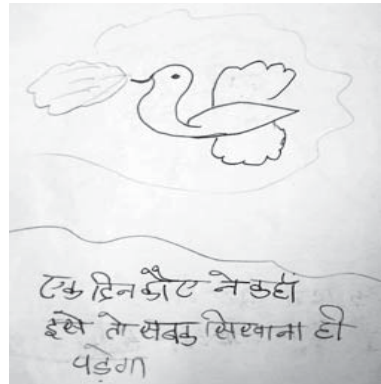 एक दिन कौए ने कहा
इसे तो सबक सिखाना ही
पड़ेगा